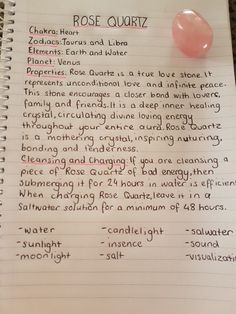 ROSE QUARTZ
Chakra: Heart
Zodiacs: Taurus and Libra
Elements: Earth and Water
Planet: Venus
Properties: Rose Quartz is a true love stone. It
represents unconditional love and infinite peace.
This stone encourages a closer bond with lovers,
family and friends. It is a deep inner healing
crystal, circulating divine loving energy
throughout your entire aura. Rose Quartz
is a mothering crystal, inspiring nuturing,
bonding and tenderness.
Cleansing and Charging: If you are cleansing a
piece of Rose Quartz of bad energy, then
submerging it for 24 hours in water is efficient
When charging Rose Quartz, leave it in a
Saltwater solution for a minimum of 48 hours.
-water -candlelight -salwater
-sunlight -insence -sound
-moonlight -salt -visualizati